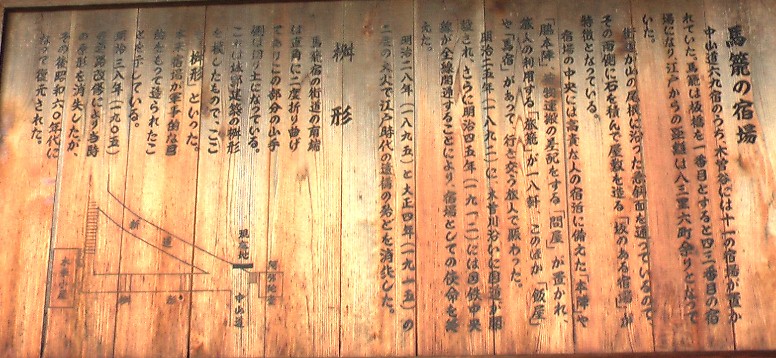 馬籠の宿場
中山道六九宿のうち、木曽谷には十一の宿場が置か
れていた。馬籠は板橋を一番目とすると四三番目の宿
場になり江戸からの距離は八三里六町余りとなって
いた。
街道が山の尾根に沿った急斜面を通っているので、
その両側に石を積んで屋敷を造る「坂のある宿場」が
特徴となっている。
宿場の中央には高貴な人の宿泊に備えた「本陣」や
「脇本陣」、荷物運搬の差配をする「問屋」が置かれ、
旅人の利用する「旅籠」が一八軒、このほか「飯屋」
や「馬宿」があって、行き交う旅人で賑わった。
明治二五年（一八九二）に、木曽川沿いに国道が開
設され、さらに明治四五年（一九一二）には国鉄中央
線が全線開通することにより、宿場としての使命を終
えた。
明治二八年（一八九五）と大正四年（一九一五）の
二度の大火で江戸時代の遺構の殆どを消失した。
桝形
馬籠宿の街道の南端
は直角に二度折り曲げ
てありこの部分の山手
側は
土になっている。
これは城郭建築の桝形
を模したもので、ここ
も「桝形」といった。
本来宿場が軍事的な目
的をもって造られたこ
とを示している。
明治三八年（一九〇五）
の道路改修により当時
の原形を消失したが、
その後昭和六〇年代に
なって復元された。
新道
現在地
中山道
桝形